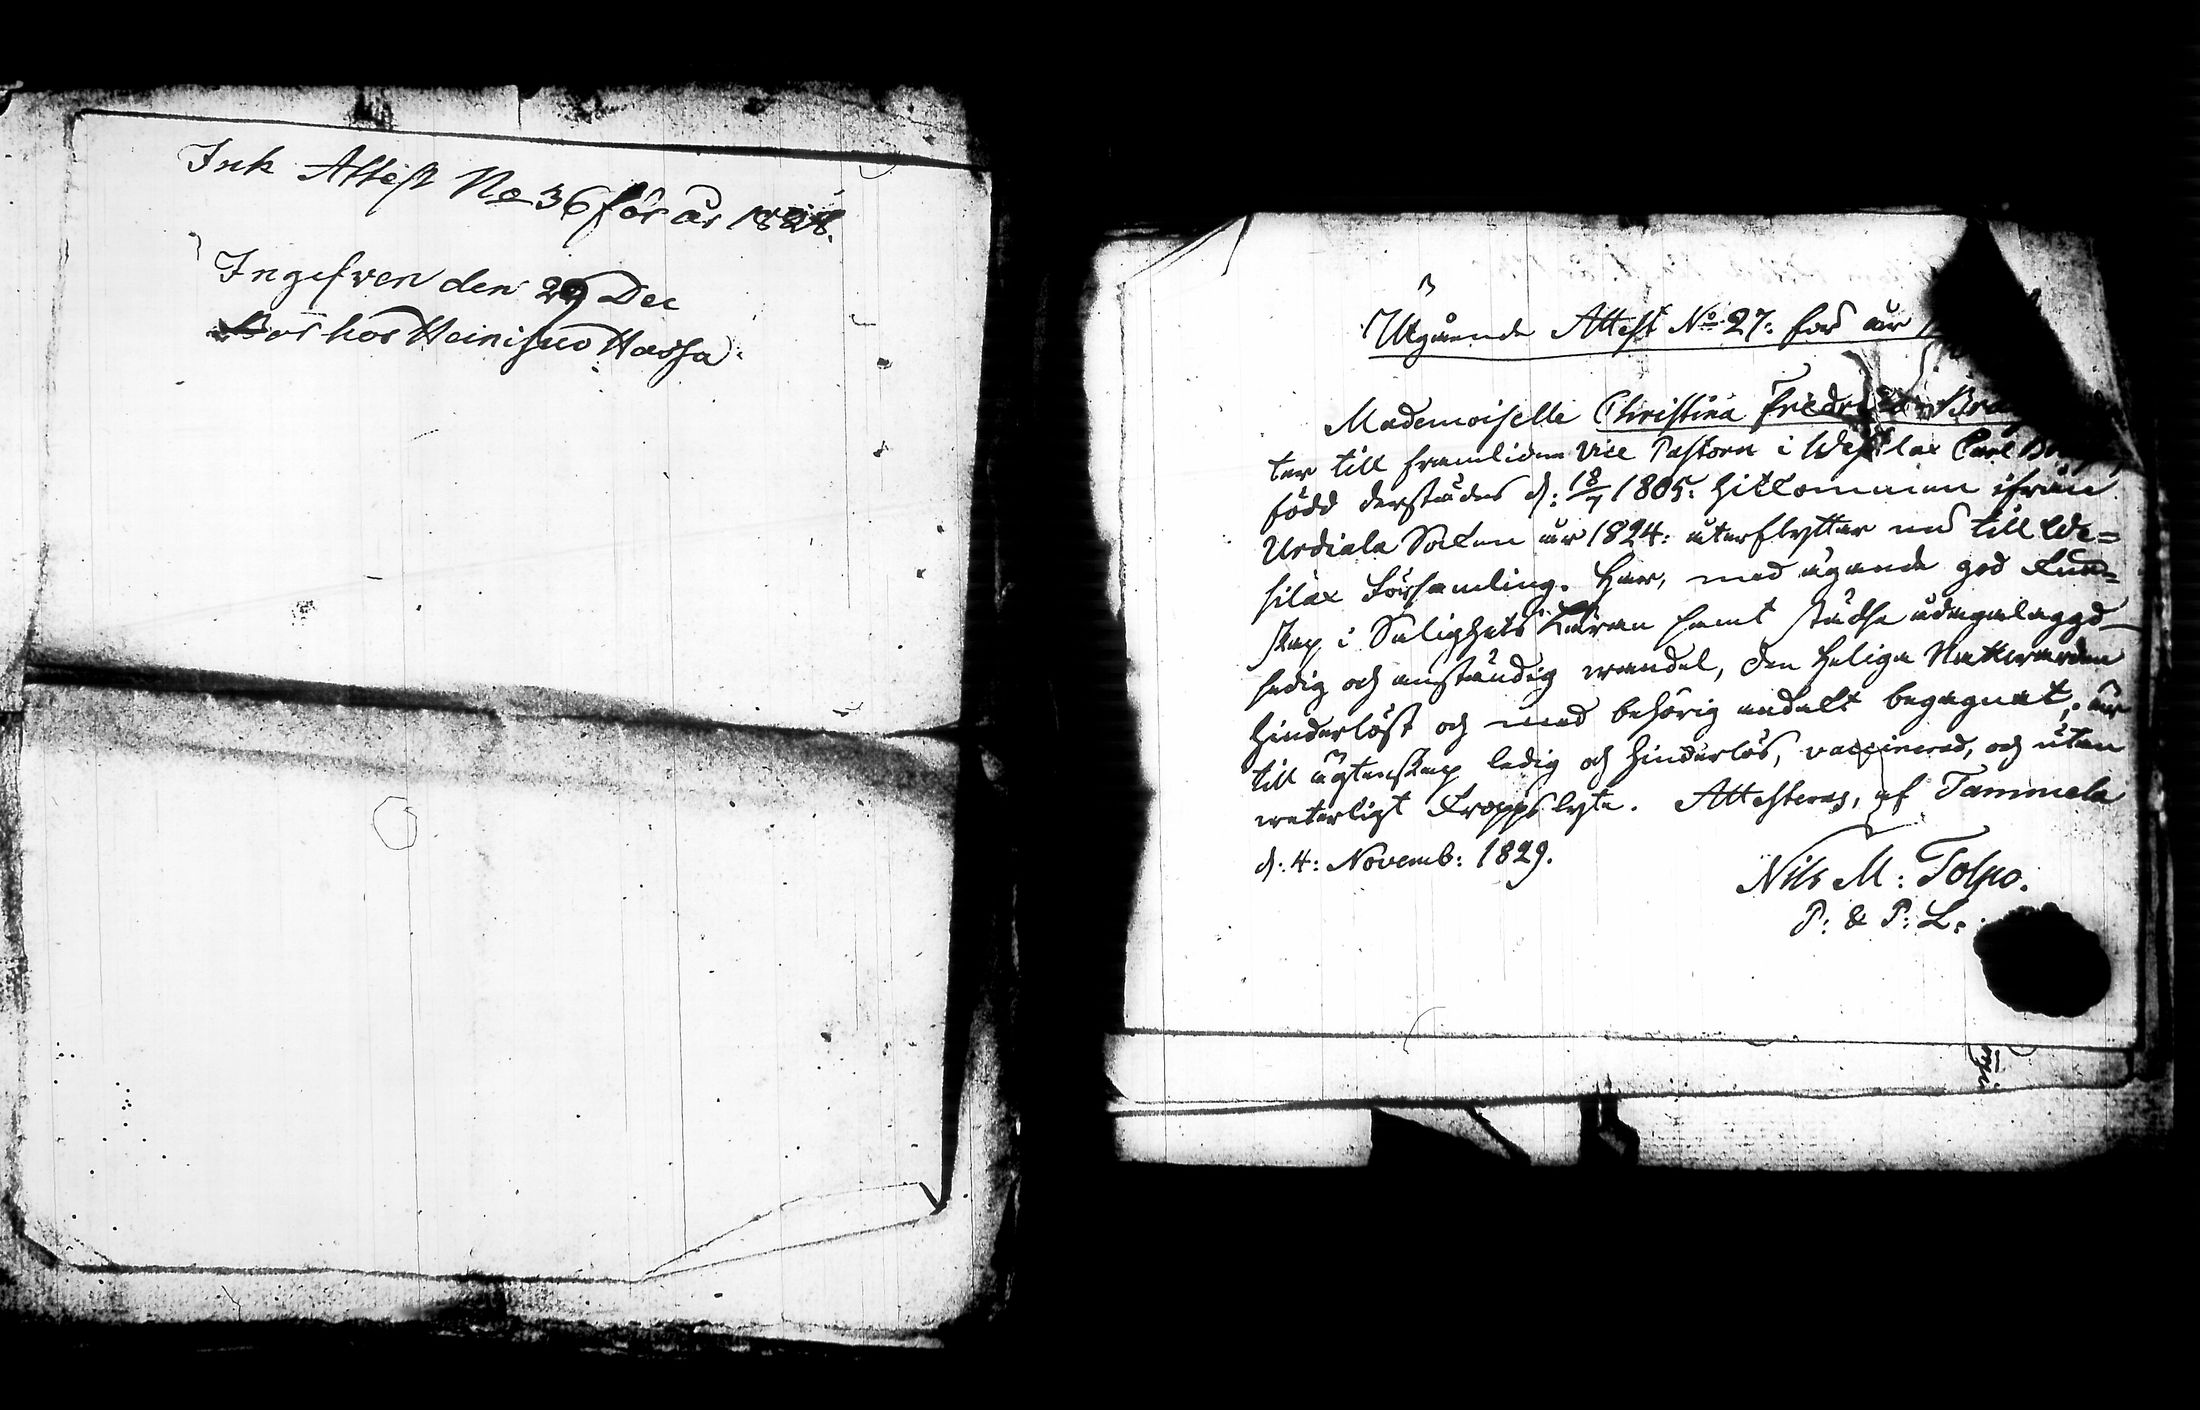 Ink Attest No 36 för år 1828.
Ingifven den 29 Dec
Bor hos Heinisuo Hassa
Utgående Attest No 27: för år
Mademoiselle Christina Fredrica
ter till framlidne Vice Pastorn i Wesilax Carl
född derstädes d: 18/7 1805: hitkommen ifrån
Urdiala Socken år 1824: återflyttar nu till We=
silax Församling. Har, med ägande god Kun=
skap i Salighets Läran samt städse ådagalaggd
sedig och anständig wandel, den Heliga Nattwarden
hinderlöst och med behörig andakt begagnat; är
till ägtenskap ledig och hinderlös, vaccinerad, och utan
weterligt Kroppslyte. Attesteras, af Tammela
d: 4: Novemb: 1829.
Nils M: Tolpo.
P: & P: L: